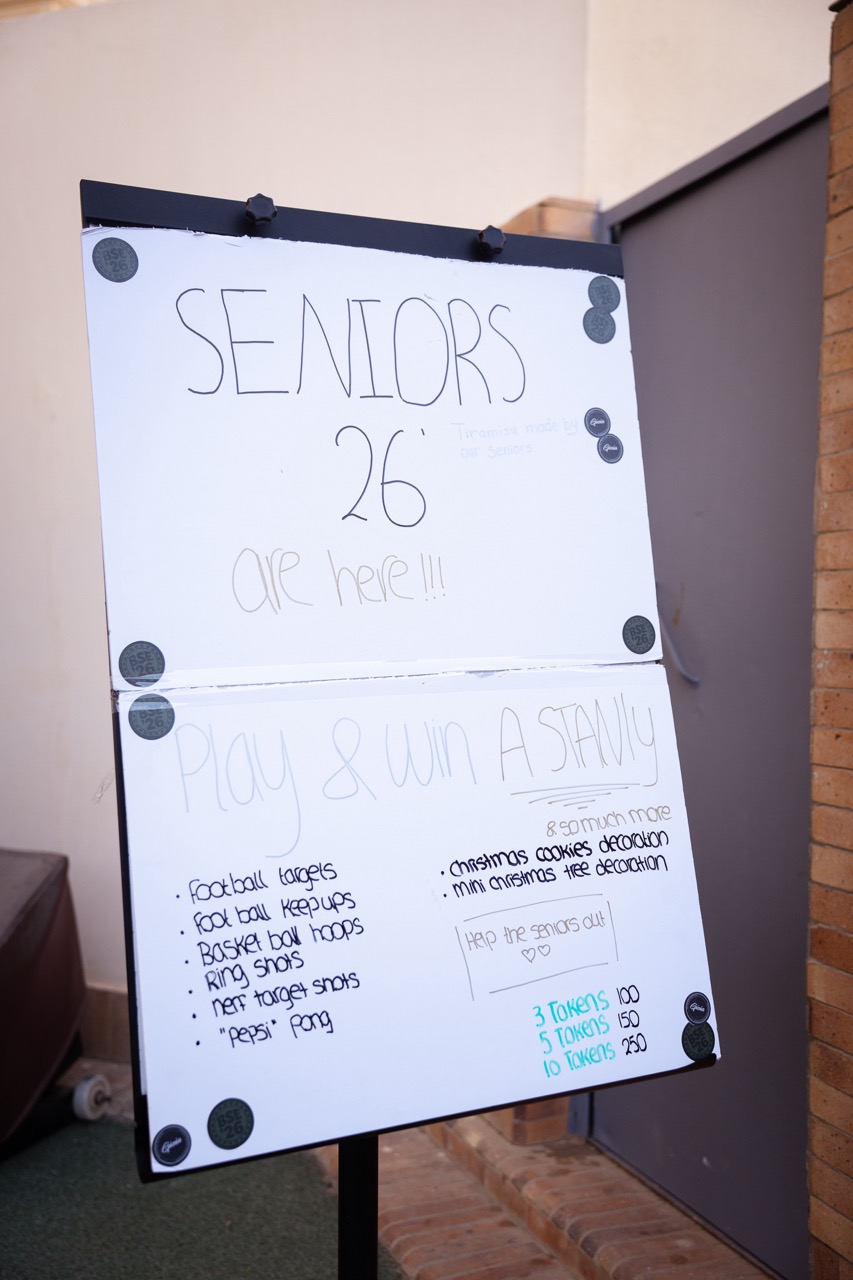 SENIORS
26'
Tiramisu made by
our seniors
are here!!!
Play & win A STANlY
& so much more
• Football targets
• Foot ball keepups
• Basket ball hoops
• Ring shots
• nerf target shots
• "pepsi" pong
• christmas cookies decoration
• mini christmas tree decoration
Help the seniors out
♡♡
3 Tokens 100
5 Tokens 150
10 Tokens 250
BSE
'26
BSE
'26
BSE
'26
BSE
'26
BSE
'26